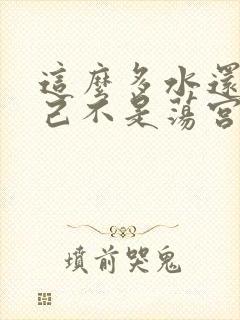 這麼多水還
己不是蕩宮
墳前哭鬼